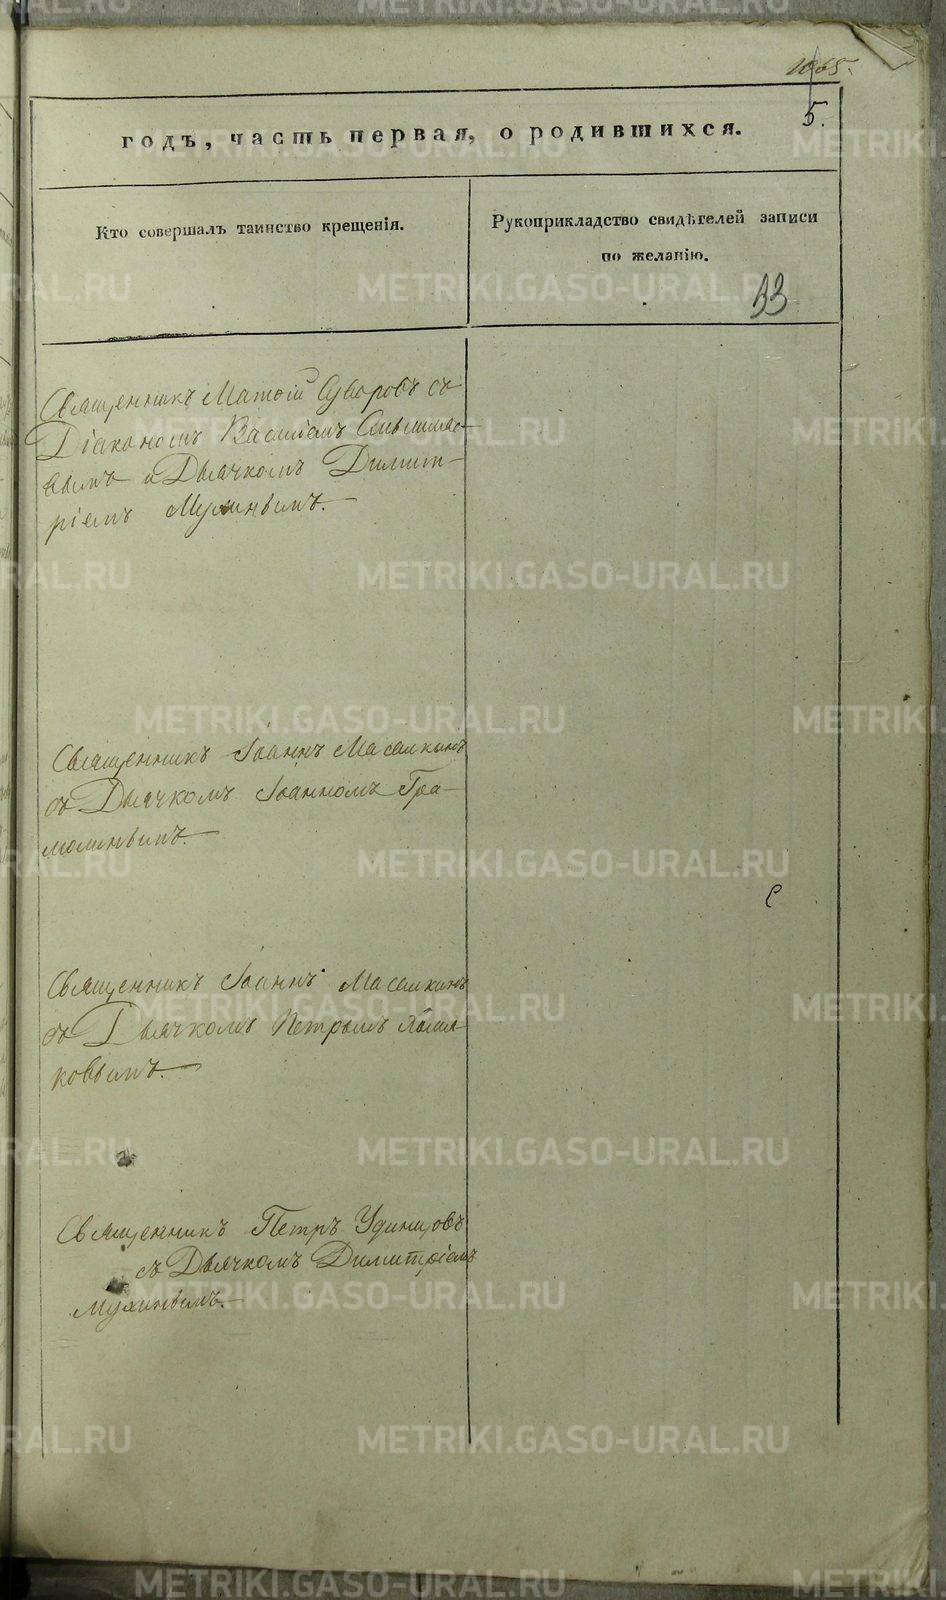 1065.
5.
годъ, часть первая, о родившихся.
Кто совершалъ таинство крещенія.
Рукоприкладство свидѣтелей записи
по желанію.
33
Священникъ Матѳій Суворовъ съ
Діакономъ Василіемъ
вымъ и Дьячкомъ Димит-
ріемъ Мухинымъ.
Священникъ Іоаннъ Масалкинъ
съ Дьячкомъ Іоанномъ Гра-
молинымъ.
Священникъ Іоаннъ Масалкинъ
съ Дьячкомъ Петромъ
ковымъ.
Священникъ Петръ Удинцовъ
съ Дьячкомъ Димитріемъ
Мухинымъ.
METRIKI.GASO-URAL.RU